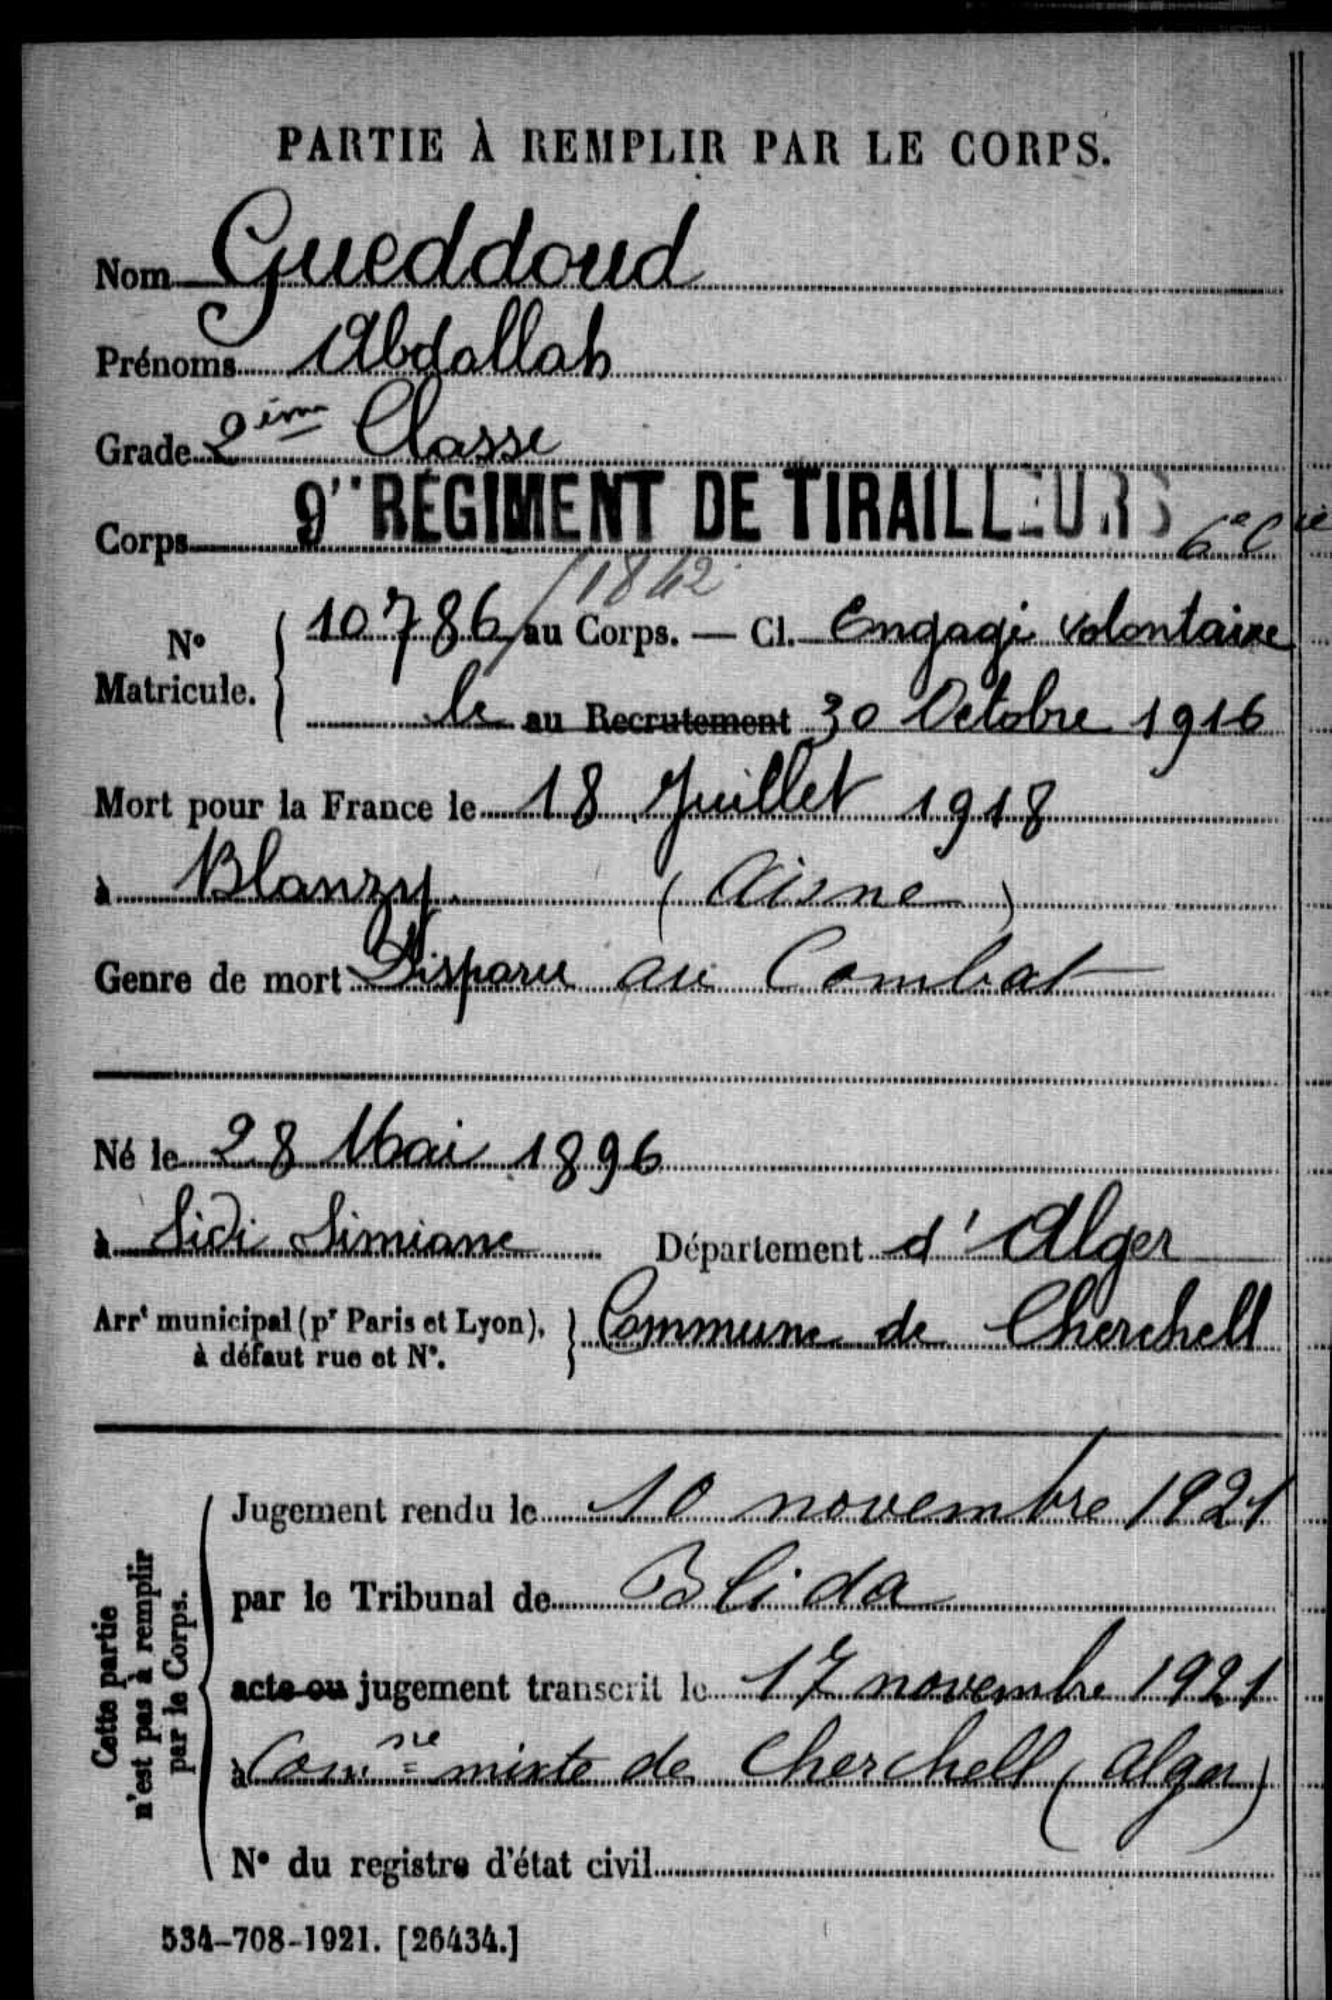 PARTIE À REMPLIR PAR LE CORPS.
Nom Gueddoud
Prénoms Abdallah
Grade 2ème Classe
Corps 9e RÉGIMENT DE TIRAILLEURS 6e Cie
/1842
N° Matricule. { 10786 au Corps. — Cl. Engagé volontaire
le au Recrutement 30 Octobre 1916
Mort pour la France le 18 Juillet 1918
à Blanzy (Aisne)
Genre de mort Disparu au Combat
Né le 28 Mai 1896
à Sidi Simiane Département d'Alger
Arrt municipal (pr Paris et Lyon), à défaut rue et N°. } Commune de Cherchell
Cette partie n'est pas à remplir par le Corps.
Jugement rendu le 10 novembre 1921
par le Tribunal de Blida
acte ou jugement transcrit le 17 novembre 1921
à Comne mixte de Cherchell (Alger)
N° du registre d'état civil
534-708-1921. [26434.]